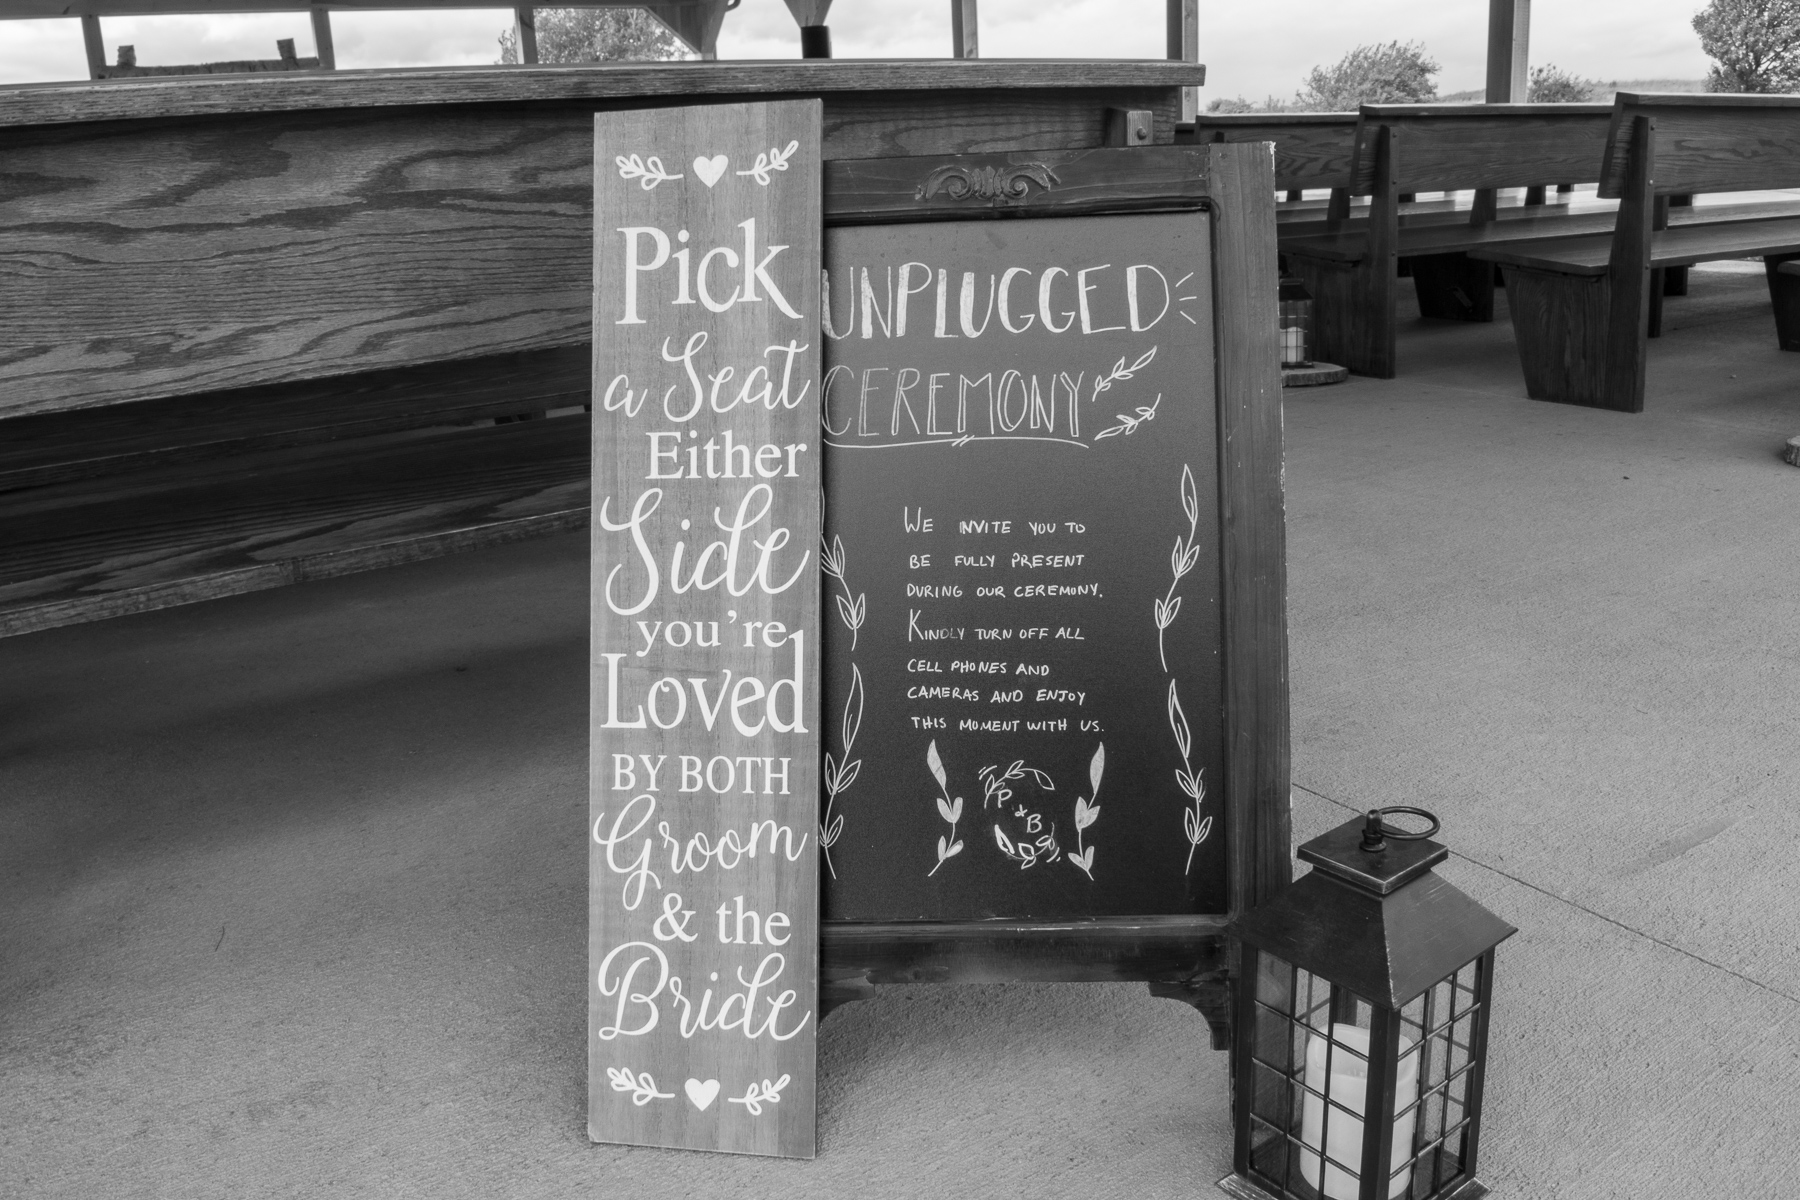 Pick
a Seat
Either
Side
you're
Loved
BY BOTH
Groom
& the
Bride
UNPLUGGED
CEREMONY
WE INVITE YOU TO
BE FULLY PRESENT
DURING OUR CEREMONY.
KINDLY TURN OFF ALL
CELL PHONES AND
CAMERAS AND ENJOY
THIS MOMENT WITH US.
P
+ B